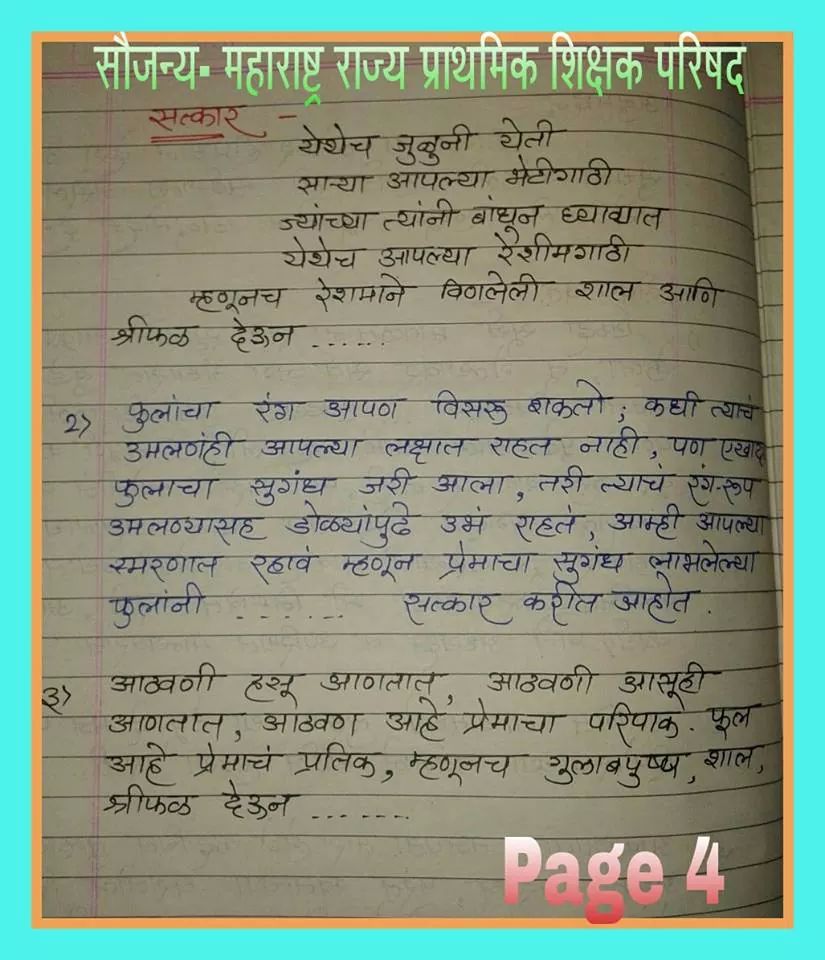 सौजन्य- महाराष्ट्र राज्य प्राथमिक शिक्षक परिषद
सत्कार -
येथेच जुळुनी येती
साऱ्या आपल्या भेटीगाठी
ज्यांच्या त्यांनी बांधून घ्याव्यात
येथेच आपल्या रेशीमगाठी
म्हणूनच रेशमाने विणलेली शाल आणि
श्रीफळ देऊन ......
2) फुलांचा रंग आपण विसरू शकतो; कधी त्याचं
उमलणंही आपल्या लक्षात राहत नाही, पण एखाद्या
फुलाचा सुगंध जरी आला, तरी त्याचं रंग-रूप
उमलण्यासह डोळ्यांपुढे उभं राहतं, आम्ही आपल्या
स्मरणात रहावं म्हणून प्रेमाचा सुगंध लाभलेल्या
फुलांनी ...... सत्कार करीत आहोत.
3) आठवणी हसू आणतात, आठवणी आसूही
आणतात, आठवण आहे प्रेमाचा परिपाक. फूल
आहे प्रेमाचं प्रतिक, म्हणूनच गुलाबपुष्प, शाल,
श्रीफळ देऊन ......
Page 4